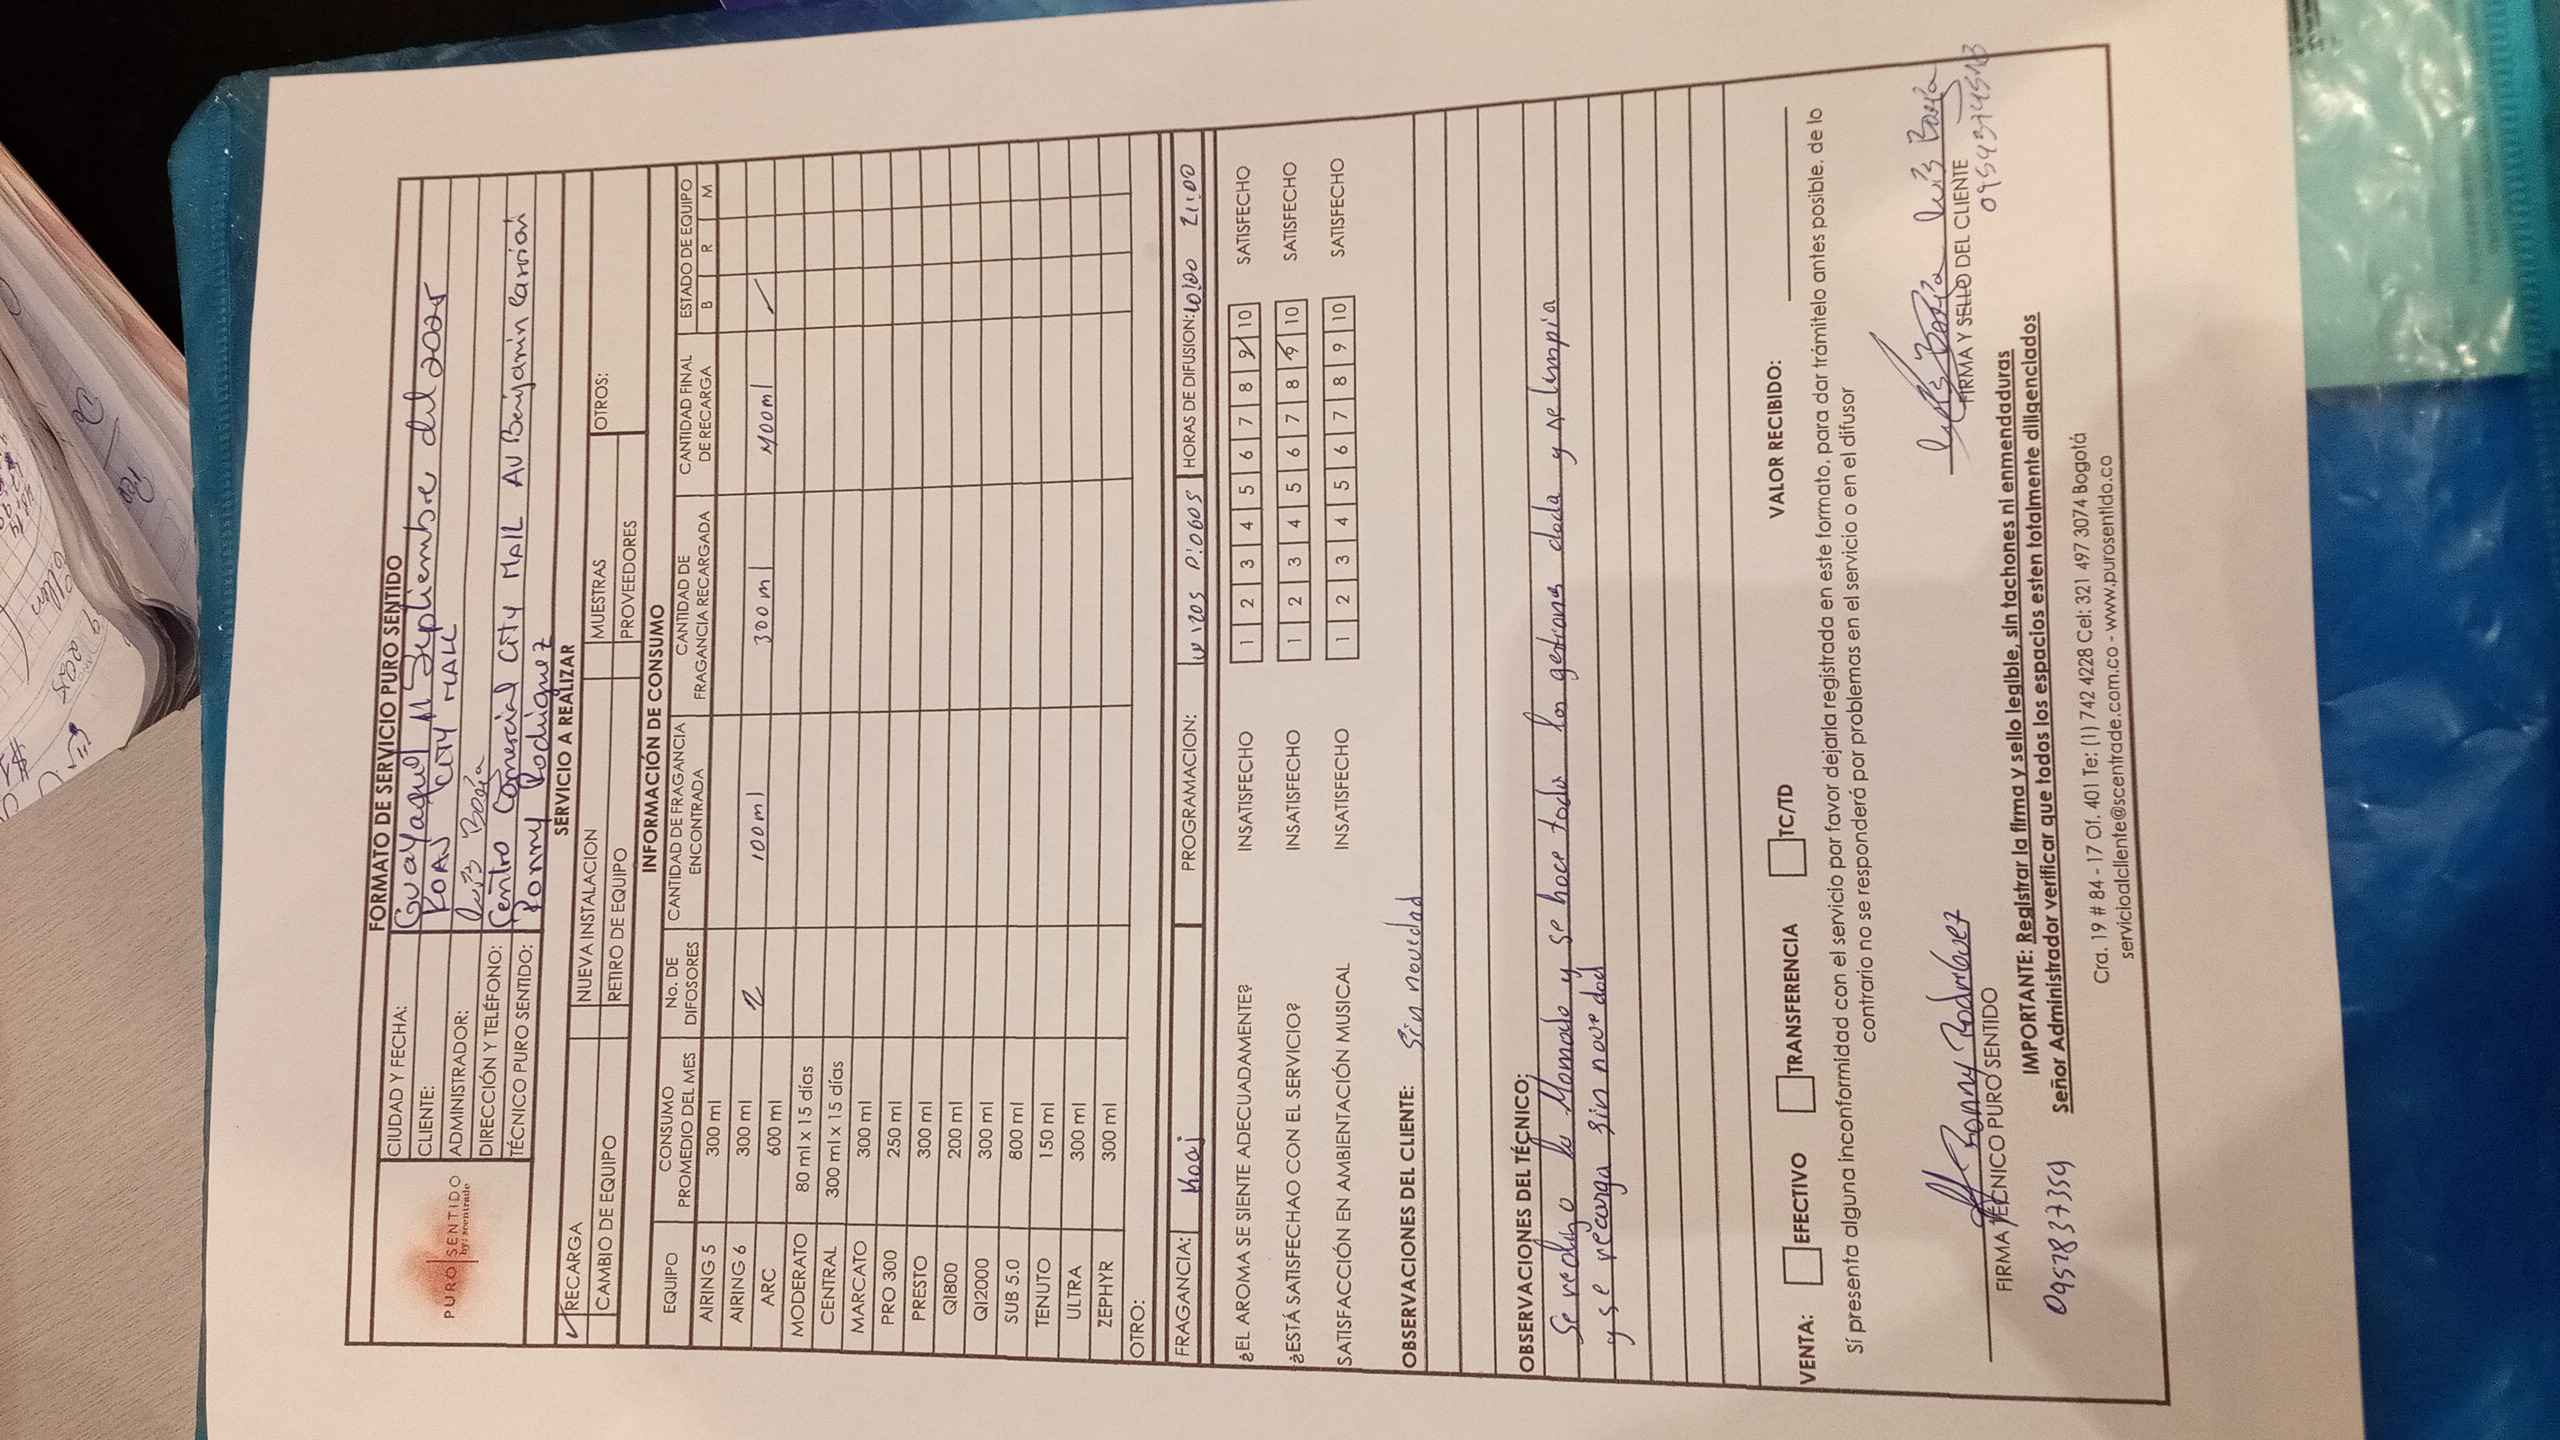 FORMATO DE SERVICIO PURO SENTIDO
PURO SENTIDO
by: scentrade
CIUDAD Y FECHA: Guayaquil 11 Septiembre del 2025
CLIENTE: KOAJ CITY MALL
ADMINISTRADOR: Luis Borja
DIRECCIÓN Y TELÉFONO: Centro Comercial CITY MALL AV Benjamin Carrión
TÉCNICO PURO SENTIDO: Ronny Rodriguez
SERVICIO A REALIZAR
✓ RECARGA NUEVA INSTALACION MUESTRAS OTROS:
CAMBIO DE EQUIPO RETIRO DE EQUIPO PROVEEDORES
INFORMACIÓN DE CONSUMO
EQUIPO CONSUMO PROMEDIO DEL MES No. DE DIFOSORES CANTIDAD DE FRAGANCIA ENCONTRADA CANTIDAD DE FRAGANCIA RECARGADA CANTIDAD FINAL DE RECARGA ESTADO DE EQUIPO
B R M
AIRING 5 300 ml
AIRING 6 300 ml 2 100ml 300ml 400ml ✓
ARC 600 ml
MODERATO 80 ml x 15 días
CENTRAL 300 ml x 15 días
MARCATO 300 ml
PRO 300 250 ml
PRESTO 300 ml
QI800 200 ml
QI2000 300 ml
SUB 5.0 800 ml
TENUTO 150 ml
ULTRA 300 ml
ZEPHYR 300 ml
OTRO:
FRAGANCIA: Koaj PROGRAMACION: W:120S P:060S HORAS DE DIFUSION: 10:00 21:00
¿EL AROMA SE SIENTE ADECUADAMENTE? INSATISFECHO 1 2 3 4 5 6 7 8 9 10 SATISFECHO
¿ESTÁ SATISFECHAO CON EL SERVICIO? INSATISFECHO 1 2 3 4 5 6 7 8 9 10 SATISFECHO
SATISFACCIÓN EN AMBIENTACIÓN MUSICAL INSATISFECHO 1 2 3 4 5 6 7 8 9 10 SATISFECHO
OBSERVACIONES DEL CLIENTE: Sin novedad
OBSERVACIONES DEL TÉCNICO:
Se realizo la y se hace toda la y se limpia
y se recarga sin novedad
VENTA: EFECTIVO TRANSFERENCIA TC/TD VALOR RECIBIDO:
Sí presenta alguna inconformidad con el servicio por favor dejarla registrada en este formato, para dar trámitelo antes posible, de lo
contrario no se responderá por problemas en el servicio o en el difusor
Ronny Rodriguez
Luis Borja Luis Borja
FIRMA TÉCNICO PURO SENTIDO FIRMA Y SELLO DEL CLIENTE
0957837359
IMPORTANTE: Registrar la firma y sello legible, sin tachones ni enmendaduras
Señor Administrador verificar que todos los espacios esten totalmente diligenciados
Cra. 19 # 84 - 17 Of. 401 Te: (1) 742 4228 Cel: 321 497 3074 Bogotá
servicioalcliente@scentrade.com.co - www.purosentido.co